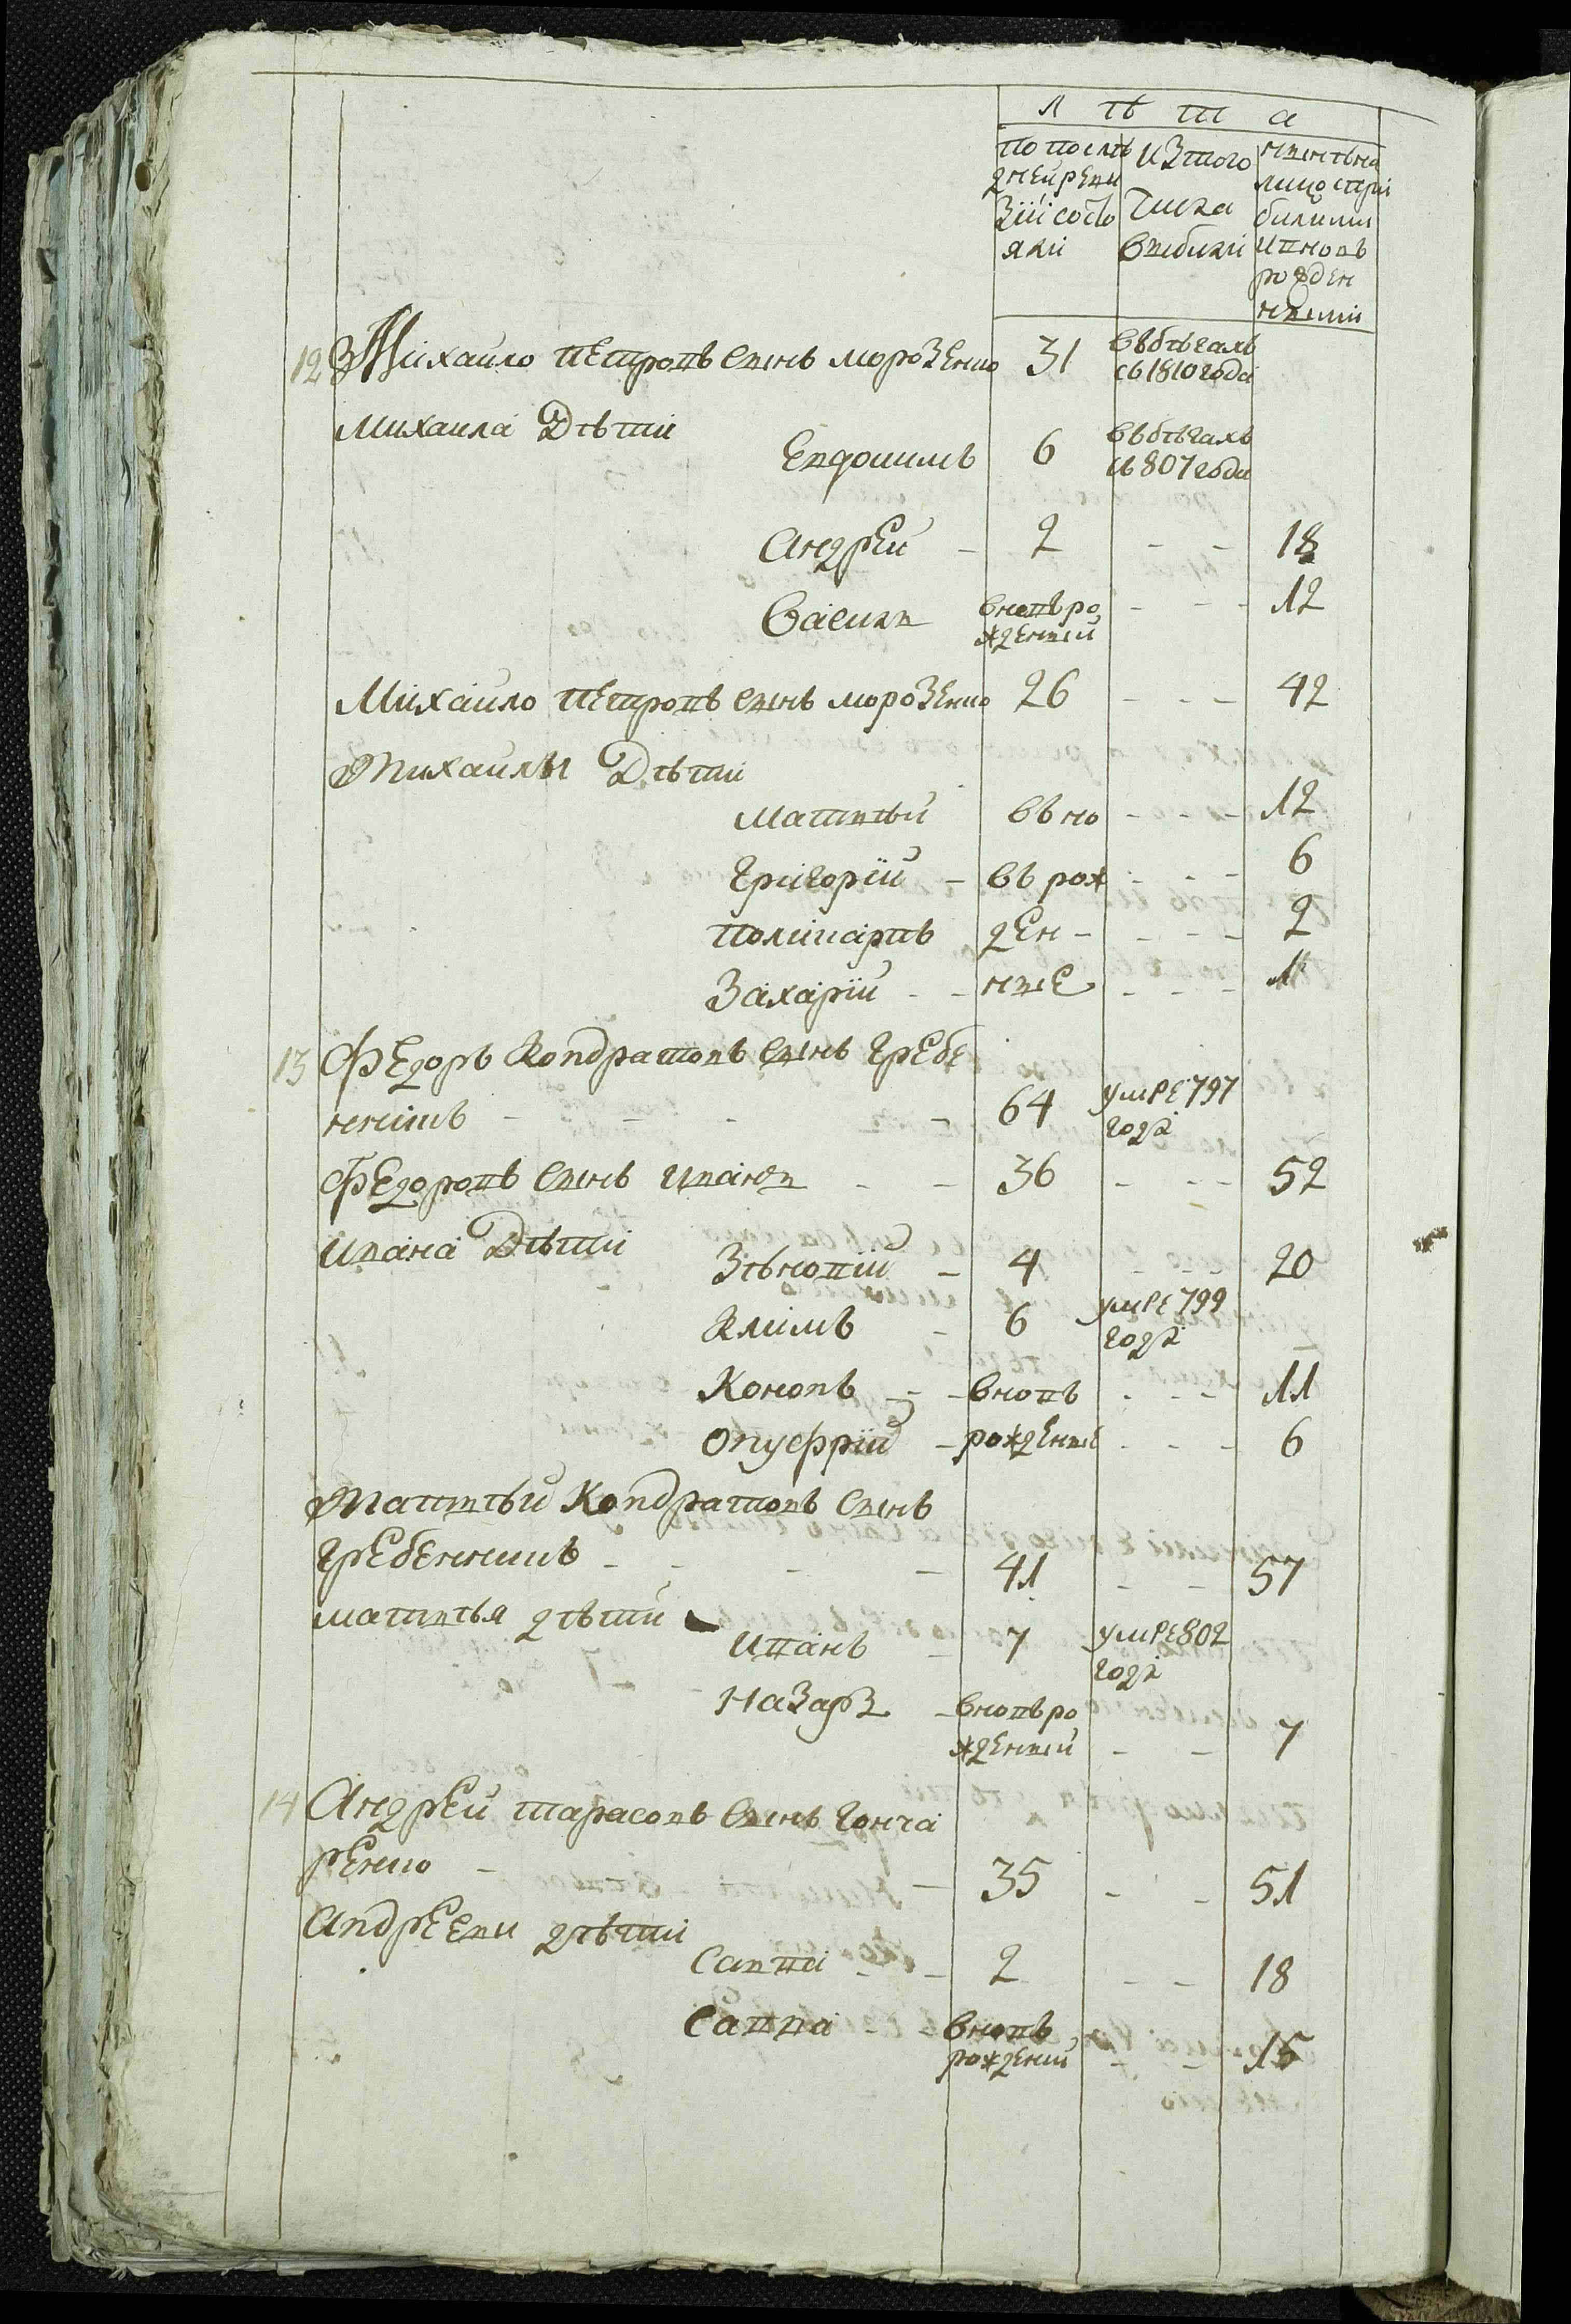 Лѣта
по послѣ
дней реви
зіи состо
яли
изтого
числа
выбыли
нынѣ на
лицо спри
былыми
и вновь
рожден
ными
12 Михайло петровъ сынъ морозенко 31 въ бѣгахъ
съ 1810 года
Михаила Дѣти
Евдокимъ 6 въ бѣгахъ
съ 807 года
Андрей - 2 - - 18
Василы вновь ро - - - 12
жденный
Михайло петровъ сынъ морозенко 26 - - - 42
Михайлы Дѣти
матвѣй въ но - - - 12
Григорій - въ рож - - - 6
поликарпъ ден - - - - 2
Захарій - - ные - - - 1
13 Федоръ Кондратовъ сынъ Гребе
нникъ - - - - 64 умре 797
года
Федоровъ сынъ Иванъ - - 36 - - - 52
Ивана Дѣти
Зѣновій - 4 - - - 20
Климъ - 6 умре 799
года
Кononъ - - - вновь - - - 11
Онуфрій - рожденые - - - 6
Матвѣй Кондратовъ сынъ
Гребенникъ - - - - 41 - - 57
матвѣя дѣти
Иванъ - 7 умре 802
года
Назаръ - вновь ро
жденный - - 7
14 Андрей тарасовъ сынъ Гонча
ренко - - 35 - - 51
Андреевы дѣти
Савва - - 2 - - 18
Савва - - вновь
рожденый - - 15